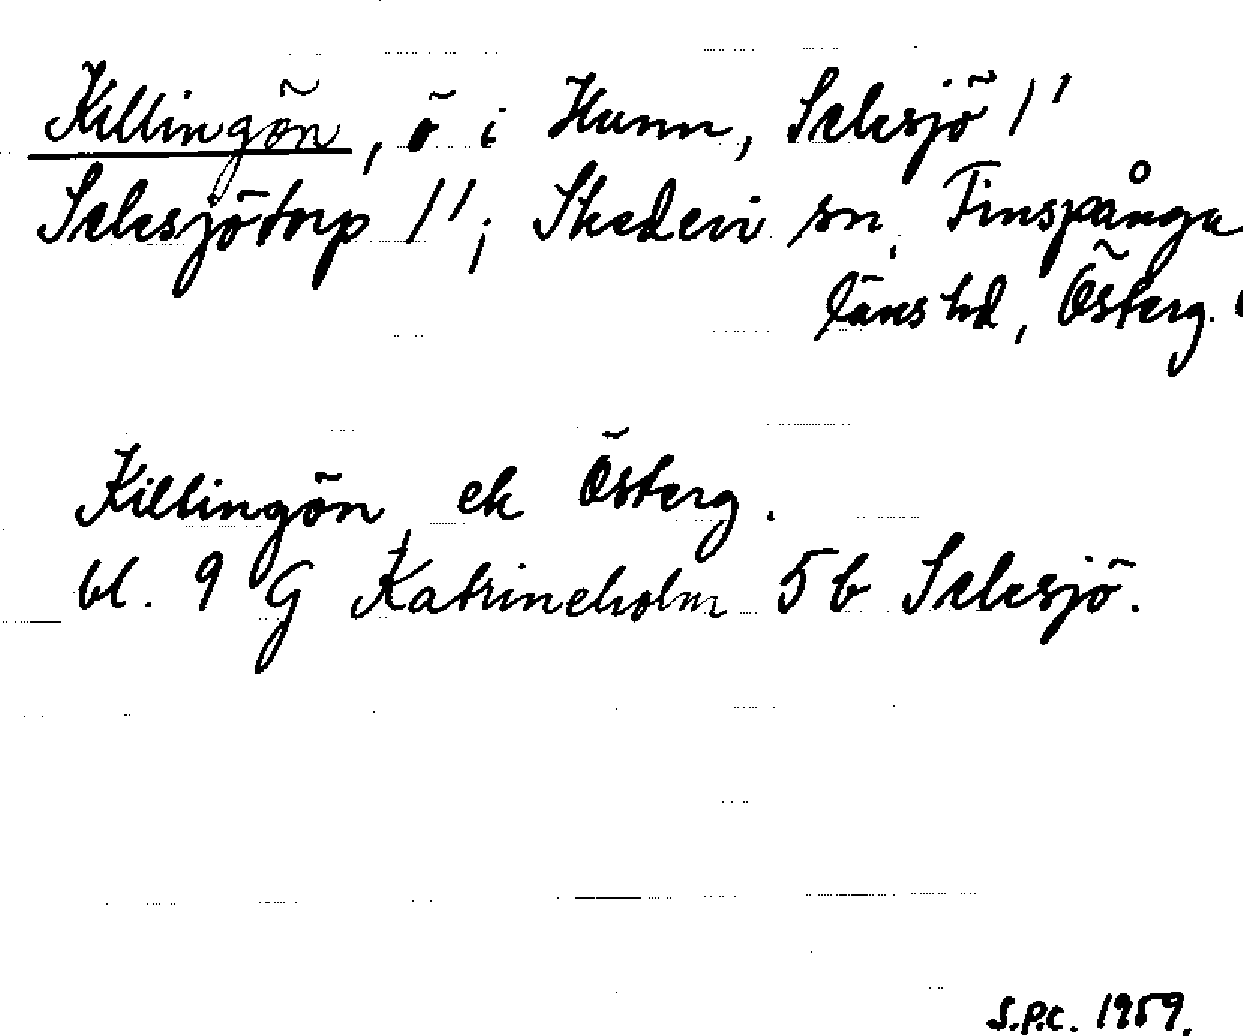 Killingön, ö i Hunn, Sälsjö 1'
Sälsjötorp 1'; Skedevi sn, Finspånga
läns hd, Österg.
Killingön ek Österg.
bl. 9 G Katrineholm 5 b Sälsjö.
S.P.C. 1959.